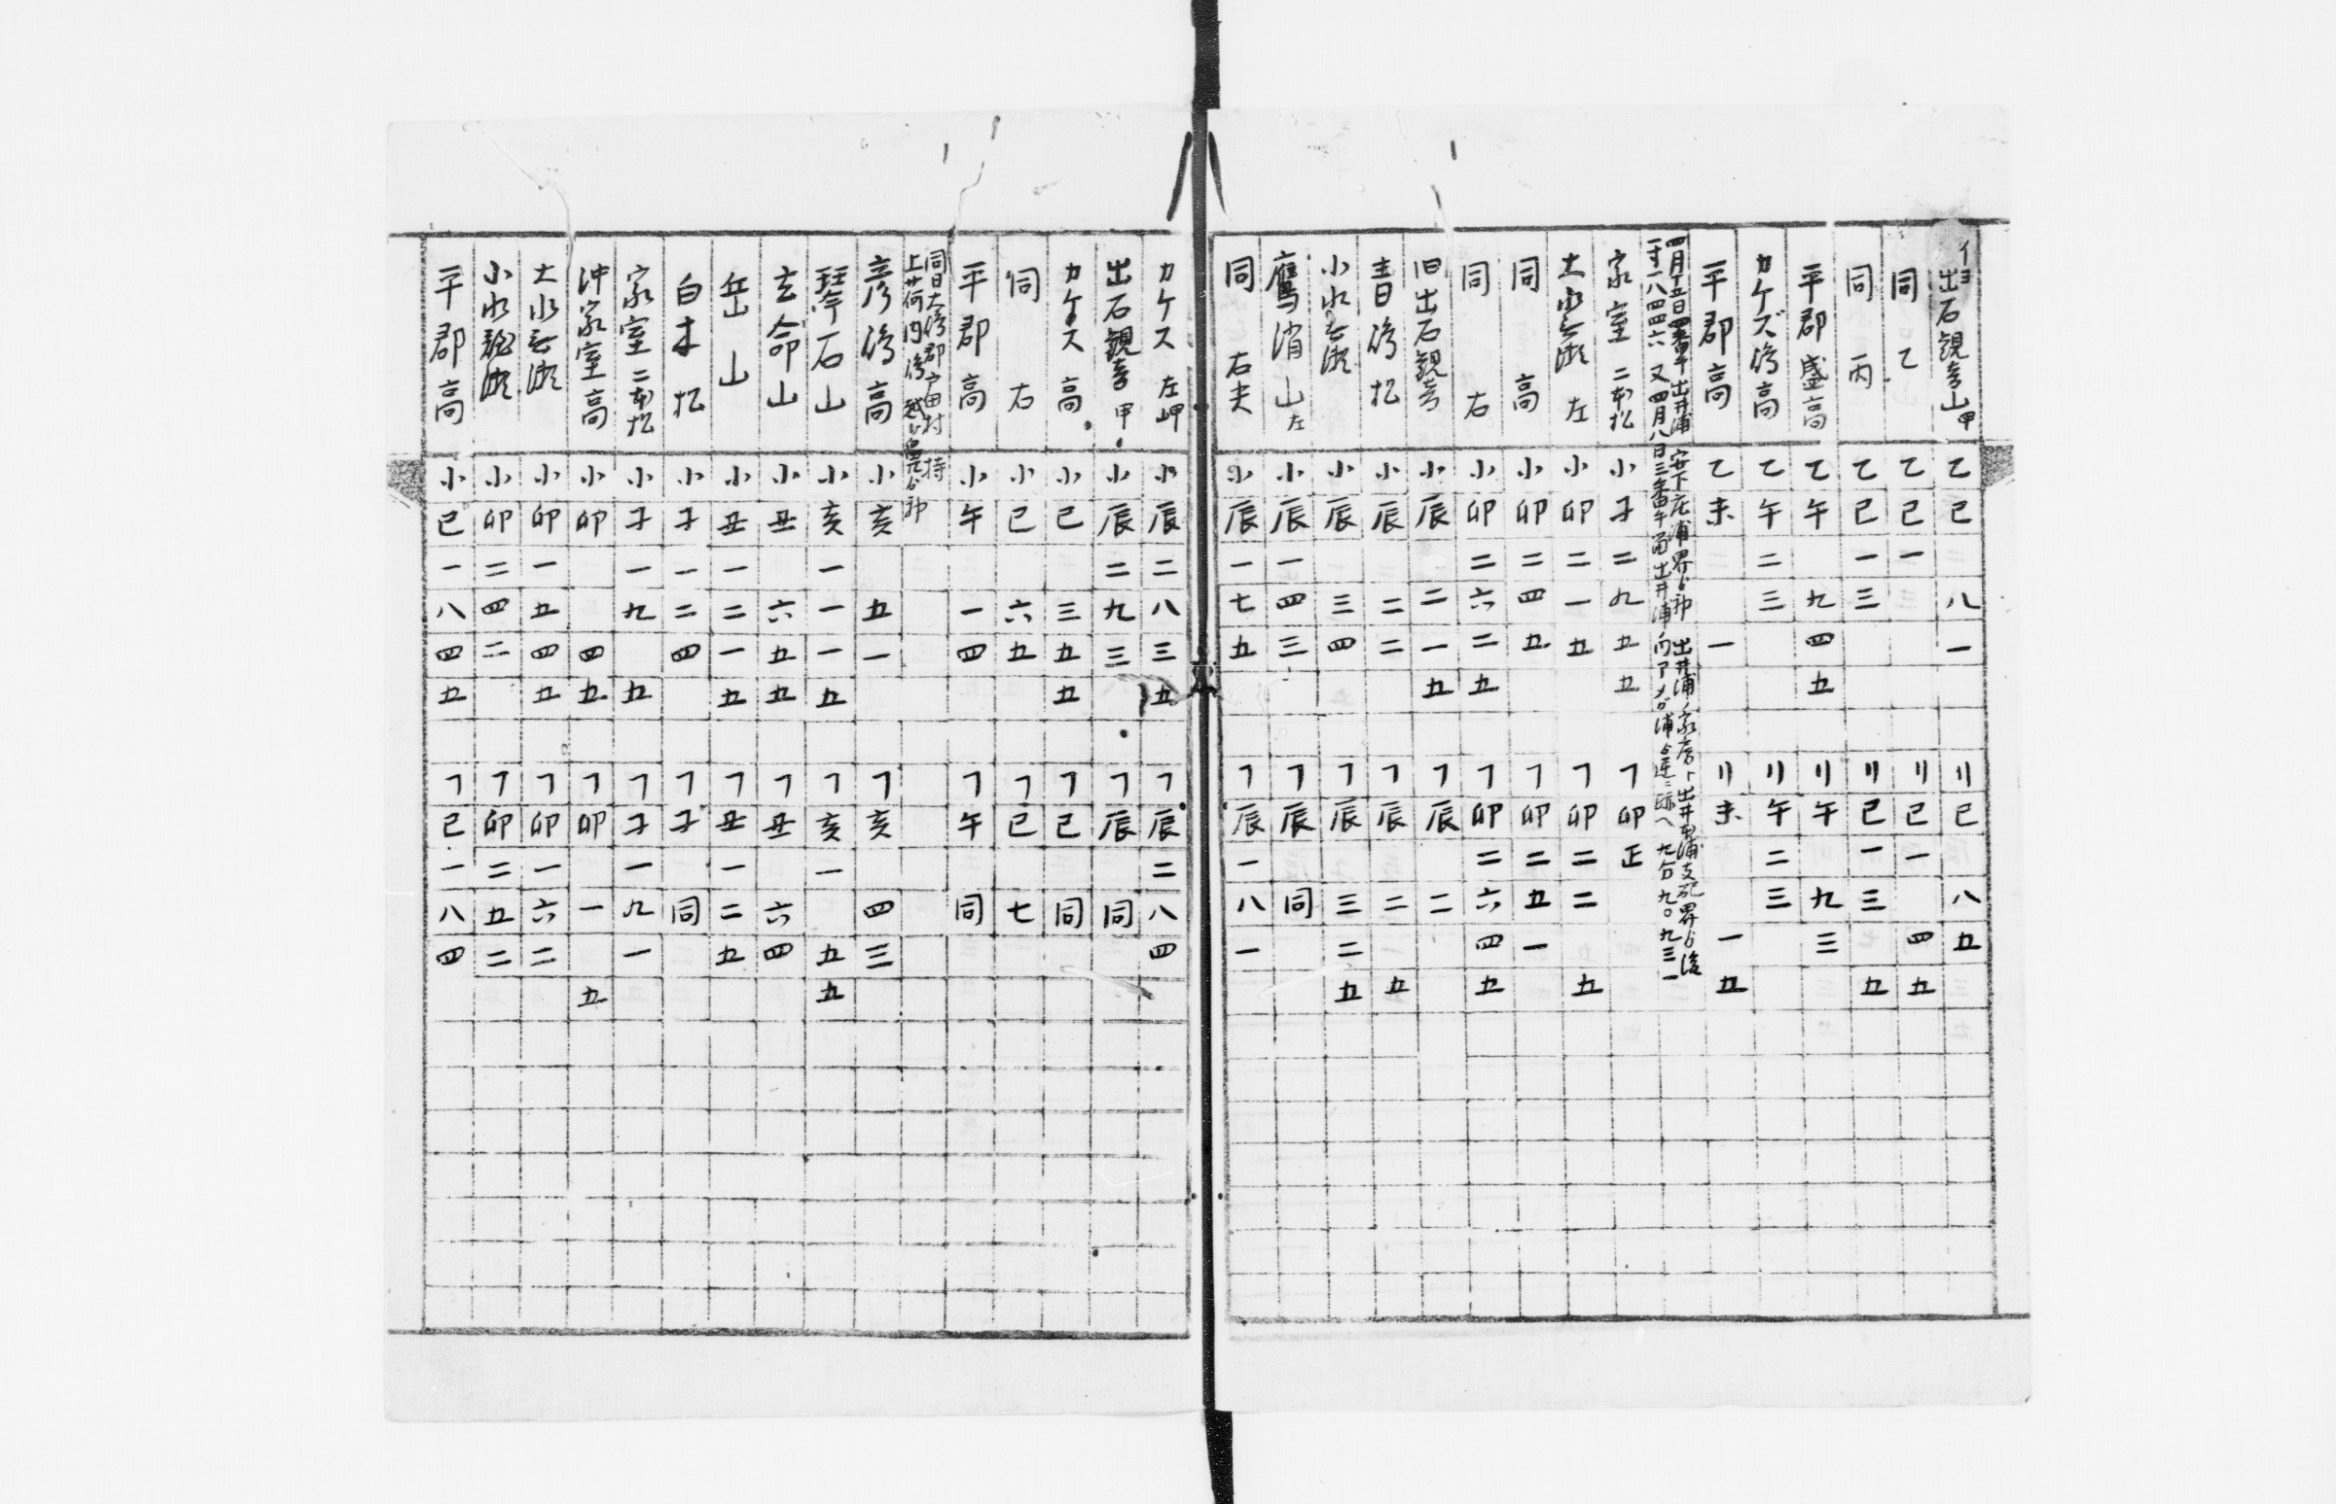 イヨ 出石観音山甲 乙 巳 八 一 リ 巳 八 五
同 乙 乙 巳 一 リ 巳 一 四 五
同 丙 乙 巳 一 三 リ 巳 一 三 五
平郡盛高 乙 午 九 四 五 リ 午 九 三
カケズ 高 乙 午 二 三 リ 午 二 三
平郡高 乙 未 一 リ 未 一 五
四月五日 出井浦 安下庄浦界
一八四四六 又四月八日三番 出井浦
家室 二本松 小 子 二 九 五 五 フ 卯 正
大水無瀬 左 小 卯 二 一 五 フ 卯 二 二 五
同 高 小 卯 二 四 五 フ 卯 二 五 一
同 右 小 卯 二 六 二 五 フ 卯 二 六 四 五
旧出石観音 小 辰 二 一 五 フ 辰 二
青日 松 小 辰 二 二 フ 辰 二 五
小水無瀬 小 辰 三 四 フ 辰 三 二 五
鷹消山 左 小 辰 一 四 三 フ 辰 同
同 右夫 小 辰 一 七 五 フ 辰 一 八 一
カケス 左岬 小 辰 二 八 三 五 フ 辰 二 八 四
出石観音 甲 小 辰 二 九 三 フ 辰 同
カケス 高 小 巳 三 五 五 フ 巳 同
同 右 小 巳 六 五 フ 巳 七
平郡 高 小 午 一 四 フ 午 同
同日大 郡戸田村 持
彦 高 小 亥 五 一 フ 亥 四 三
琴石山 小 亥 一 一 一 五 フ 亥 一 五 五
玄命山 小 丑 六 五 五 フ 丑 六 四
岳山 小 丑 一 二 一 五 フ 丑 一 二 五
白木 松 小 子 一 二 四 フ 子 同
家室 二本松 小 子 一 九 五 フ 子 一 九 一
沖家室高 小 卯 四 五 フ 卯 一 五
大水無瀬 小 卯 一 五 四 五 フ 卯 一 六 二
小水無瀬 小 卯 二 四 二 フ 卯 二 五 二
平郡高 小 巳 一 八 四 五 フ 巳 一 八 四